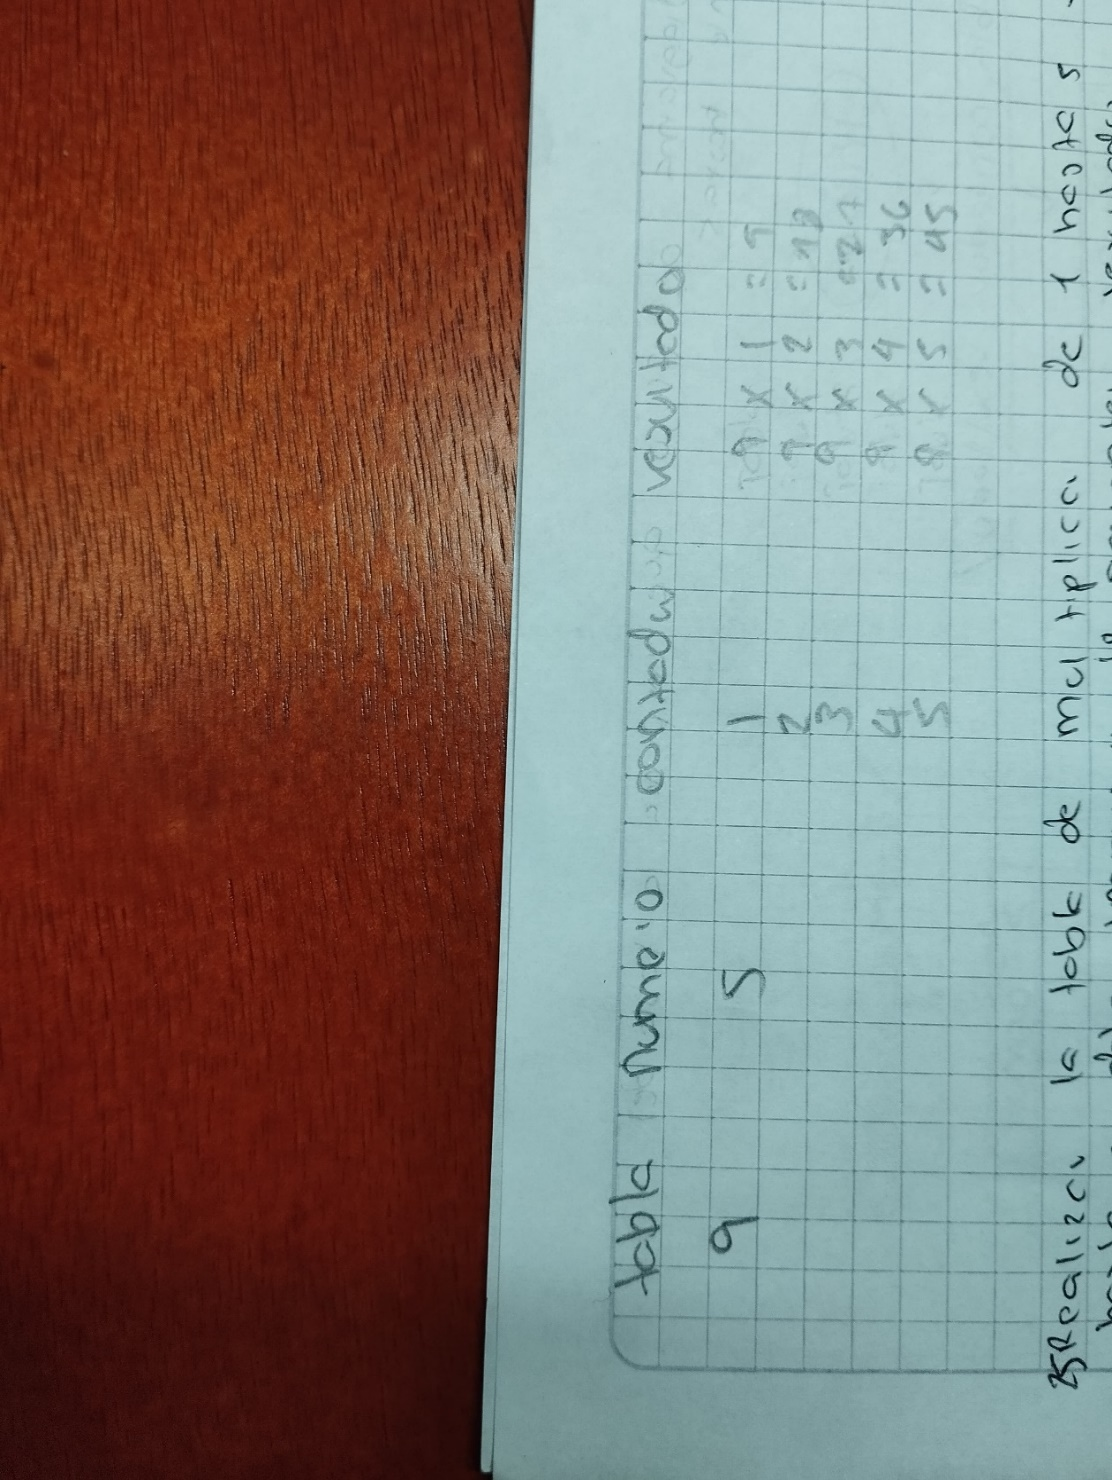 tabla numero contador resultado
9 5 1 9 x 1 = 9
2 9 x 2 = 18
3 9 x 3 = 27
4 9 x 4 = 36
5 9 x 5 = 45
Realizar la tabla de multiplicar de 1 hasta 5